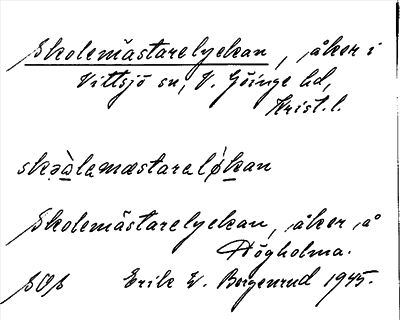 Skolemästarelyckan, åker i
Vittsjö sn, V. Göinge hd,
Krist. l.
skəàlamæstaraløkan
Skolemästarelyckan, åker å
Högholma.
SOS Erik W. Bergenrud 1945.